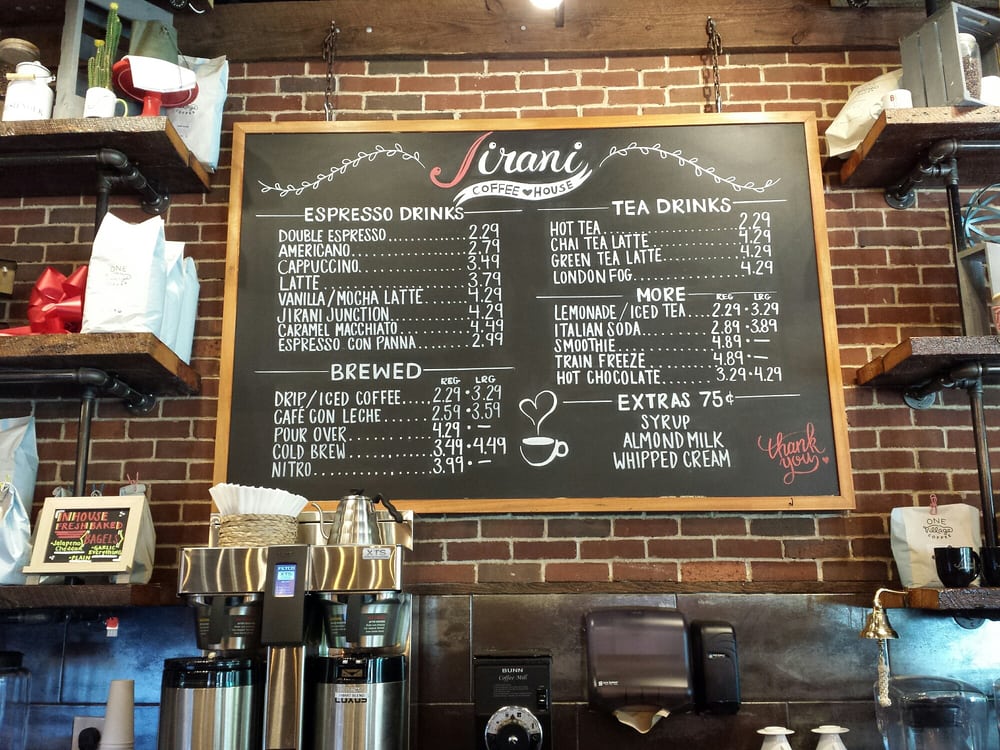 Jirani
COFFEE HOUSE
ESPRESSO DRINKS
DOUBLE ESPRESSO.......... 2.29
AMERICANO................ 2.79
CAPPUCCINO............... 3.49
LATTE.................... 3.79
VANILLA/MOCHA LATTE...... 4.29
JIRANI JUNCTION.......... 4.29
CARAMEL MACCHIATO........ 4.49
ESPRESSO CON PANNA....... 2.99
BREWED
REG LRG
DRIP/ICED COFFEE..... 2.29 • 3.29
CAFÉ CON LECHE....... 2.59 • 3.59
POUR OVER............ 4.29 • —
COLD BREW............ 3.49 • 4.49
NITRO................ 3.99 • —
TEA DRINKS
HOT TEA.................. 2.29
CHAI TEA LATTE........... 4.29
GREEN TEA LATTE.......... 4.29
LONDON FOG............... 4.29
MORE
REG LRG
LEMONADE/ICED TEA.... 2.29 • 3.29
ITALIAN SODA......... 2.89 • 3.89
SMOOTHIE............. 4.89 • —
TRAIN FREEZE......... 4.89 • —
HOT CHOCOLATE........ 3.29 • 4.29
EXTRAS 75¢
SYRUP
ALMOND MILK
WHIPPED CREAM
thank
you
ONE
Village
COFFEE
INHOUSE
FRESH BAKED
BAGELS
•Jalapeno
Cheddar
•GARLIC
•Everything
•PLAIN
XTS
FETCO
XTS
LUXUS
BUNN
Coffee Mill
ONE